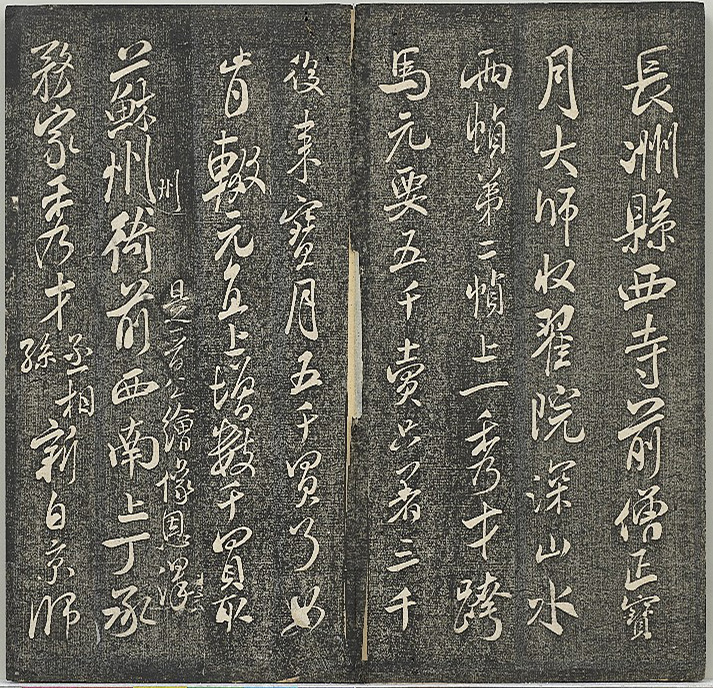 長洲縣西寺前僧正寶
月大師收翟院深山水
兩幀第二幀上一秀才跨
馬元要五千賣只著三千
後來寶月五千買了如
肯輟元直上增數千買取
州
是晉公繪像恩澤
蘇州衙前西南上丁承
務家秀才丞相孫新自京師